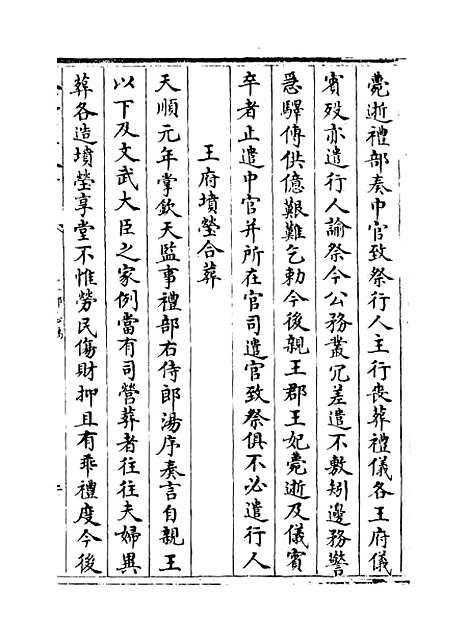 薨逝禮部奏中官致祭行人主行喪葬禮儀各王府儀
賓歿亦遣行人諭祭今公務叢冗差遣不敷矧邊務警
急驛傳供億艱難乞勅今後親王郡王妃薨逝及儀賓
卒者止遣中官并所在官司遣官致祭俱不必遣行人
王府墳塋合葬
天順元年掌欽天監事禮部右侍郎湯序奏言自親王
以下及文武大臣之家例當有司營葬者往往夫婦異
葬各造墳塋享堂不惟勞民傷財抑且有乖禮度今後